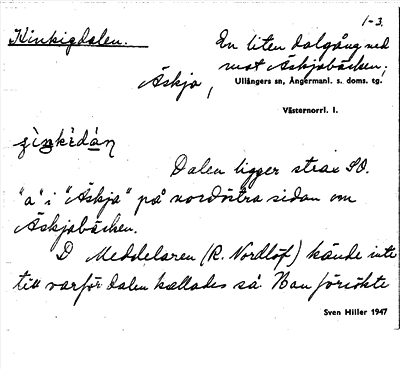 1-3.
Kinkigdalen.
En liten dalgång ned
mot Äskjabäcken;
Äskja,
Ullångers sn, Ångermanl. s. doms. tg.
Västernorrl. l.
Dalen ligger strax SO.
"a" i "Äskja" på nordöstra sidan om
Äskjabäcken.
D Meddelaren (R. Nordlöf) kände inte
till varför dalen kallades så. Han försökte
Sven Hiller 1947